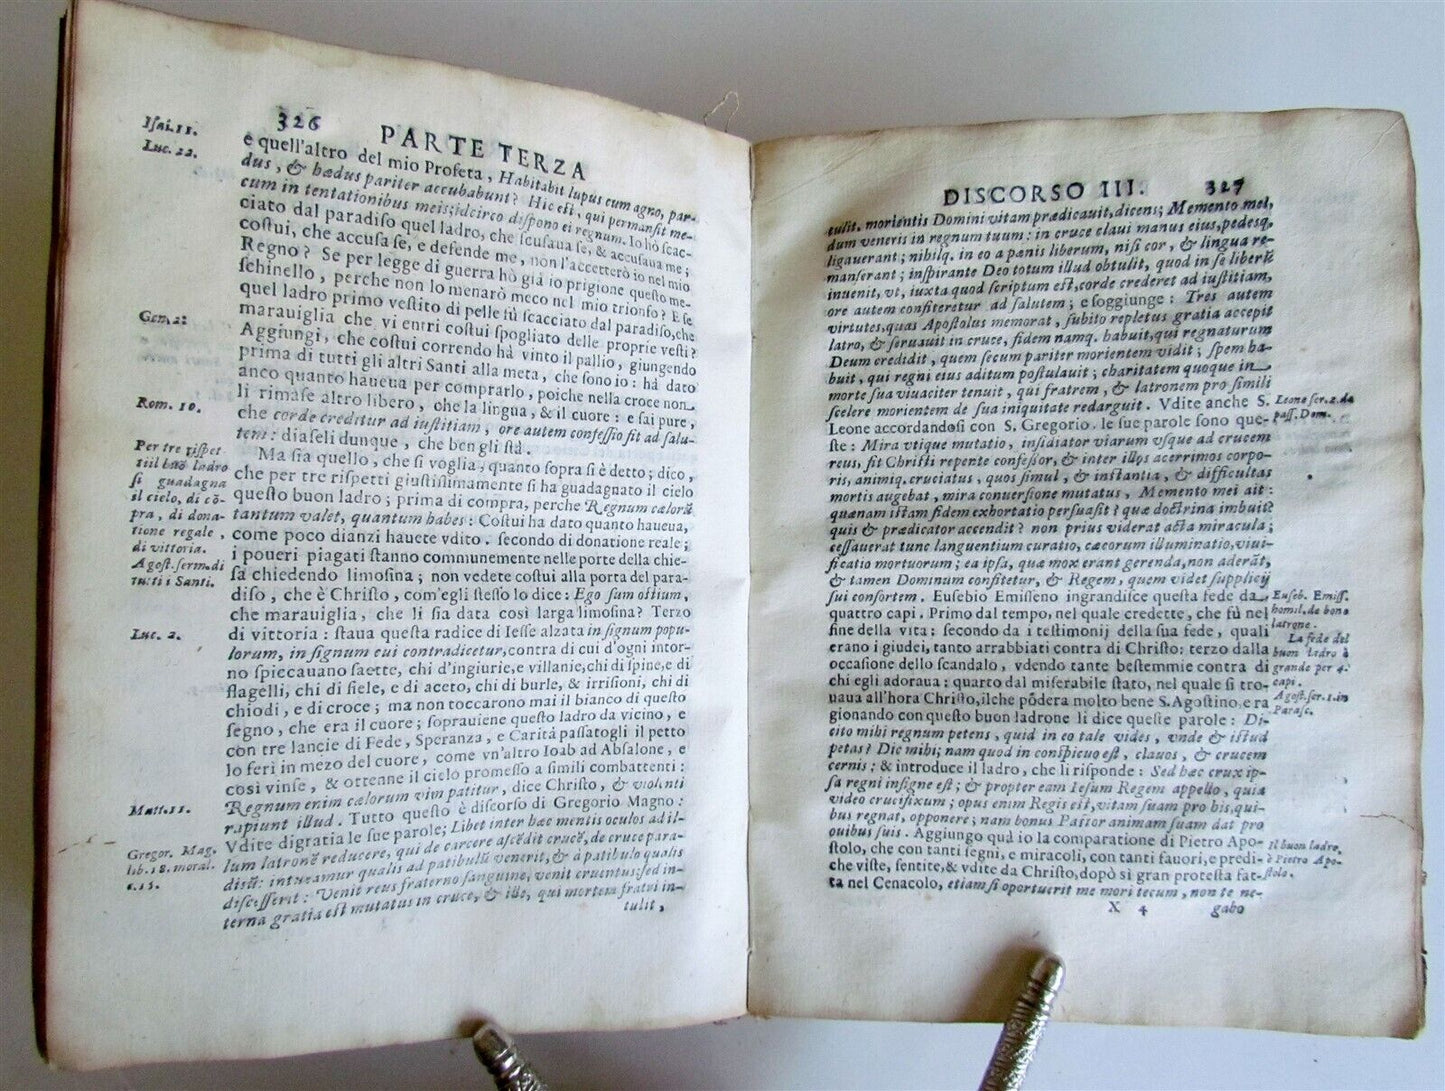 326 PARTE TERZA
Isai. 11.
Luc. 22.
e quell'altro del mio Profeta, Habitabit lupus cum agno, par-
dus, & hædus pariter accubabunt? Hic est, qui permansit me-
cum in tentationibus meis; idcirco dispono ei regnum. Io hò scac-
ciato dal paradiso quel ladro, che scusaua se, & accusaua me;
costui, che accusa se, e defende me, non l'accetterò io nel mio
Regno? Se per legge di guerra hò già io prigione questo me-
schinello, perche non lo menarò meco nel mio trionfo? E se
quel ladro primo vestito di pelle fù scacciato dal paradiso, che
marauiglia che vi entri costui spogliato delle proprie vesti?
Aggiungi, che costui correndo hà vinto il pallio, giungendo
prima di tutti gli altri Santi alla meta, che sono io: hà dato
anco quanto haueua per comprarlo, poiche nella croce non
li rimase altro libero, che la lingua, & il cuore: e sai pure,
che corde creditur ad iustitiam, ore autem confessio fit ad salu-
tem: diaseli dunque, che ben gli stà.
Gen. 2.
Rom. 10.
Ma sia quello, che si voglia, quanto sopra si è detto; dico,
che per tre rispetti giustissimamente si ha guadagnato il cielo
questo buon ladro; prima di compra, perche Regnum cælorū
tantum valet, quantum habes: Costui ha dato quanto haueua,
come poco dianzi hauete vdito. secondo di donatione reale;
i poueri piagati stanno communemente nelle porte della chie-
sa chiedendo limosina; non vedete costui alla porta del para-
diso, che è Christo, com'egli stesso lo dice: Ego sum ostium,
che marauiglia, che li sia data così larga limosina? Terzo
di vittoria: staua questa radice di Iesse alzata in signum popu-
lorum, in signum cui contradicetur, contra di cui d'ogni intor-
no spiccauano saette, chi d'ingiurie, e villanie, chi di spine, e di
flagelli, chi di fiele, e di aceto, chi di burle, & irrisioni, chi di
chiodi, e di croce; ma non toccarono mai il bianco di questo
segno, che era il cuore; soprauiene questo ladro da vicino, e
con tre lancie di Fede, Speranza, e Carità passatogli il petto
lo ferì in mezo del cuore, come vn'altro Ioab ad Absalone, e
così vinse, & ottenne il cielo promesso a simili combattenti:
Regnum enim cælorum vim patitur, dice Christo, & violenti
rapiunt illud. Tutto questo è discorso di Gregorio Magno:
Vdite di gratia le sue parole; Libet inter hæc mentis oculos ad il-
lum latronē reducere, qui de carcere ascēdit crucē, de cruce para-
disū: intueamur qualis ad patibulū venerit, & a patibulo qualis
discesserit: Venit reus fraterno sanguine, venit cruentus; sed in-
terna gratia est mutatus in cruce, & ille, qui mortem fratri in-
tulit,
Per tre rispet
ti il buō ladro
si guadagna
il cielo, di cō-
pra, di dona-
tione regale,
di vittoria.
Agost. serm. di
tutti i Santi.
Luc. 2.
Matt. 11.
Gregor. Mag.
lib. 18. moral.
c. 25.
DISCORSO III. 327
tulit, morientis Domini vitam prædicauit, dicens; Memento mei,
dum veneris in regnum tuum: in cruce claui manus eius, pedesq́;
ligauerant; nihilq. in eo a pœnis liberum, nisi cor, & lingua re-
manserant; inspirante Deo totum illud obtulit, quod in se liberū
inuenit, vt, iuxta quod scriptum est, corde crederet ad iustitiam,
ore autem confiteretur ad salutem; e soggiunge: Tres autem
virtutes, quas Apostolus memorat, subito repletus gratia accepit
latro, & seruauit in cruce, fidem namq. habuit, qui regnaturum
Deum credidit, quem secum pariter morientem vidit; spem ha-
buit, qui regni eius aditum postulauit; charitatem quoque in
morte sua viuaciter tenuit, qui fratrem, & latronem pro simili
scelere morientem de sua iniquitate redarguit. Vdite anche S.
Leone accordandosi con S. Gregorio. le sue parole sono que-
ste: Mira vtique mutatio, insidiator viarum vsque ad crucem
reus, fit Christi repente confessor, & inter illos acerrimos corpo-
ris, animiq. cruciatus, quos simul, & instantia, & difficultas
mortis augebat, mira conuersione mutatus, Memento mei ait:
quænam istam fidem exhortatio persuasit? quæ doctrina imbuit?
quis & prædicator accendit? non prius viderat acta miracula;
cessauerat tunc languentium curatio, cæcorum illuminatio, viui-
ficatio mortuorum; ea ipsa, quæ mox erant gerenda, non aderāt,
& tamen Dominum confitetur, & Regem, quem videt supplicij
sui consortem. Eusebio Emisseno ingrandisce questa fede da
quattro capi. Primo dal tempo, nel quale credette, che fù nel
fine della vita; secondo da i testimonij della sua fede, quali
erano i giudei, tanto arrabbiati contra di Christo: terzo dalla
occasione dello scandalo, vdendo tante bestemmie contra di
chi egli adoraua: quarto dal miserabile stato, nel quale si tro-
uaua all'hora Christo, ilche pōdera molto bene S. Agostino, e ra
gionando con questo buon ladrone li dice queste parole: Di-
cito mihi regnum petens, quid in eo tale vides, vnde & istud
petas? Dic mihi; nam quod in conspicuo est, clauos, & crucem
cernis; & introduce il ladro, che li risponde: Sed hæc crux ip-
sa regni insigne est; & propter eam Iesum Regem appello, quia
video crucifixum; opus enim Regis est, vitam suam pro his, qui-
bus regnat, opponere; nam bonus Pastor animam suam dat pro
ouibus suis. Aggiungo quà io la comparatione di Pietro Apo-
stolo, che con tanti segni, e miracoli, con tanti fauori, e predi-
che viste, sentite, & vdite da Christo, dopò si gran protesta fat-
ta nel Cenacolo, etiamsi oportuerit me mori tecum, non te ne-
X 4 gabo
Leone ser. 2. de
pass. Dom.
Euseb. Emiss.
homil. de bono
latrone.
La fede del
buon ladro è
grande per 4.
capi.
Agost. ser. 1. in
Parasc.
Il buon ladro,
e Pietro Apo-
stolo.